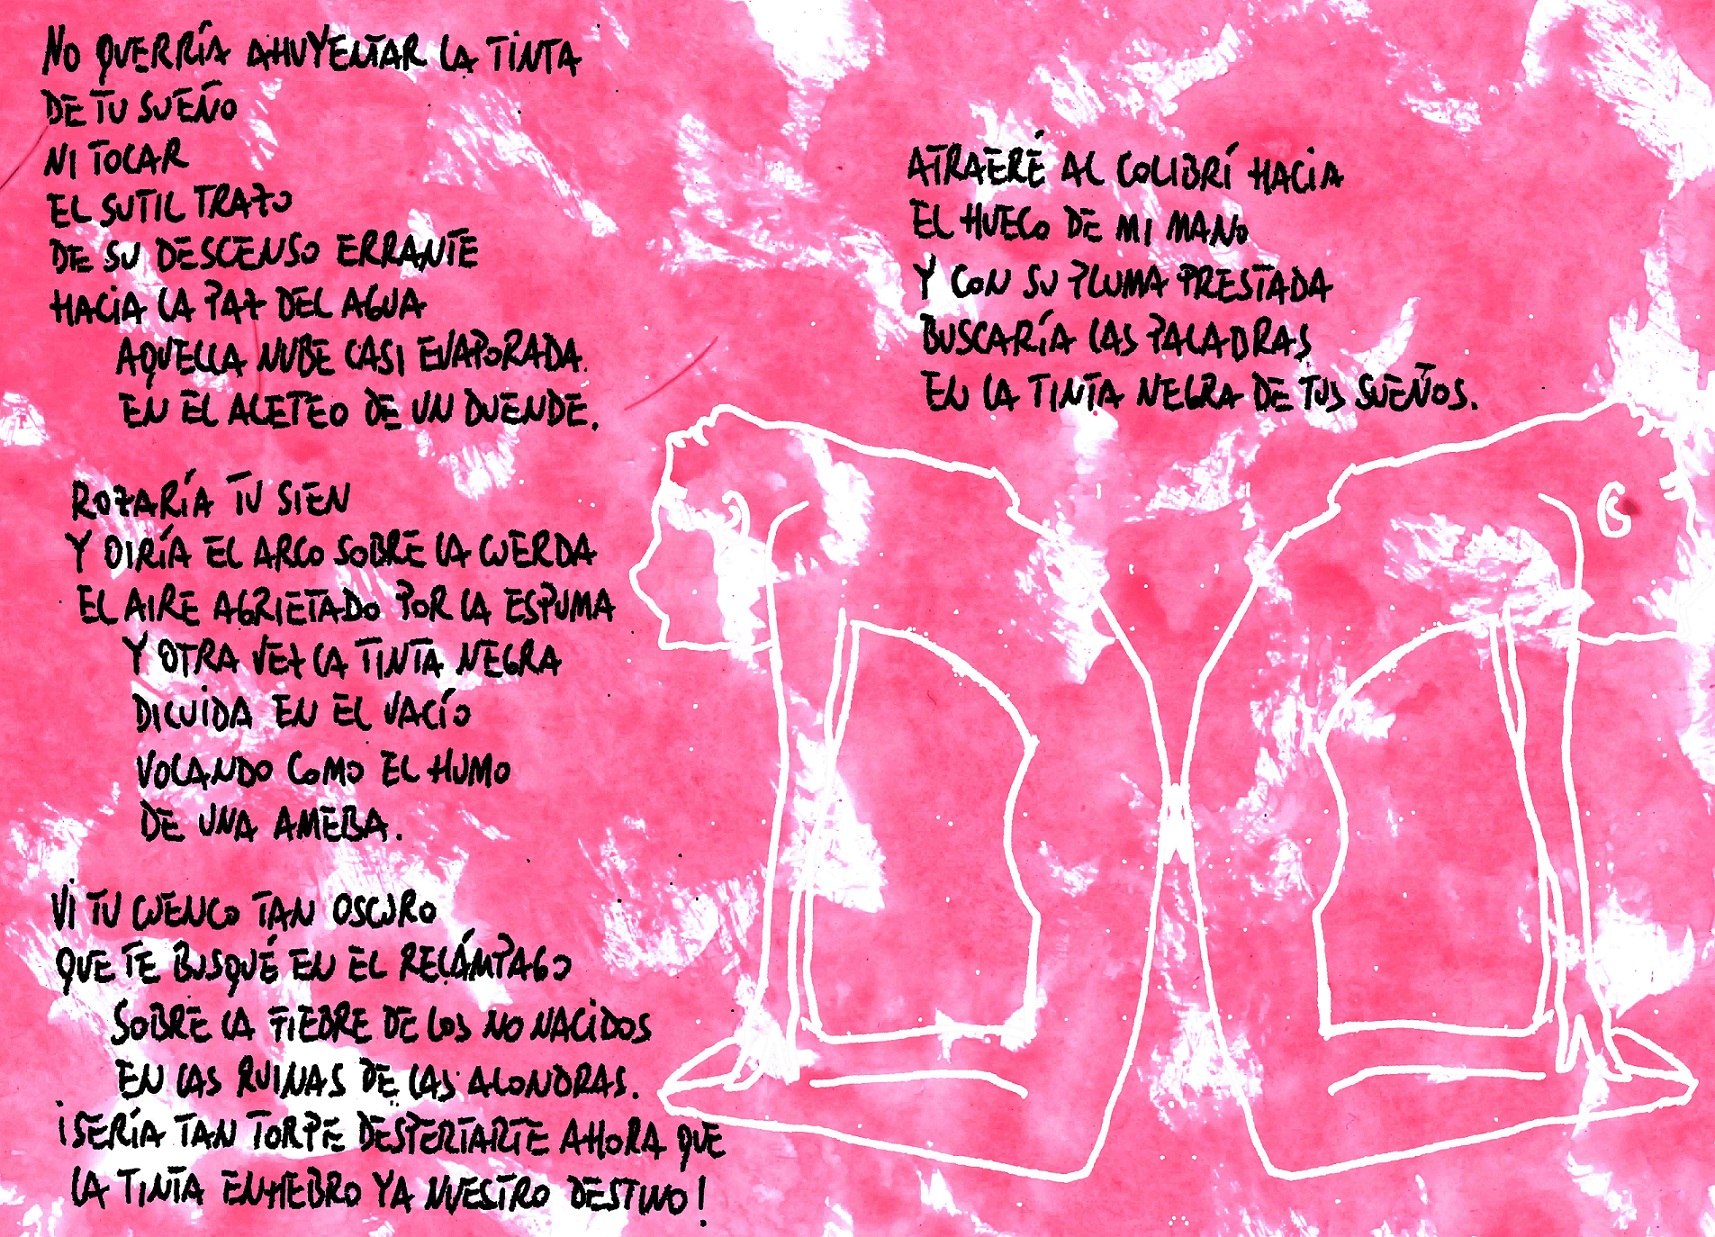 NO QUERRÍA AHUYENTAR LA TINTA
DE TU SUEÑO
NI TOCAR
EL SUTIL TRAZO
DE SU DESCENSO ERRANTE
HACIA LA PAZ DEL AGUA
AQUELLA NUBE CASI EVAPORADA
EN EL ALETEO DE UN DUENDE.
ROZARÍA TU SIEN
Y OIRÍA EL ARCO SOBRE LA CUERDA
EL AIRE AGRIETADO POR LA ESPUMA
Y OTRA VEZ LA TINTA NEGRA
DILUIDA EN EL VACÍO
VOLANDO COMO EL HUMO
DE UNA AMEBA.
VI TU CUENCO TAN OSCURO
QUE TE BUSQUÉ EN EL RELÁMPAGO
SOBRE LA FIEBRE DE LOS NO NACIDOS
EN LAS RUINAS DE LAS ALONDRAS.
¡SERÍA TAN TORPE DESPERTARTE AHORA QUE
LA TINTA ENHEBRO YA NUESTRO DESTINO!
ATRAERÉ AL COLIBRÍ HACIA
EL HUECO DE MI MANO
Y CON SU PLUMA PRESTADA
BUSCARÍA LAS PALABRAS
EN LA TINTA NEGRA DE TUS SUEÑOS.